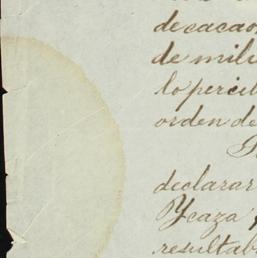 de cacao
de mil
lo percib
orden de
declarar
Ycaza
resultab